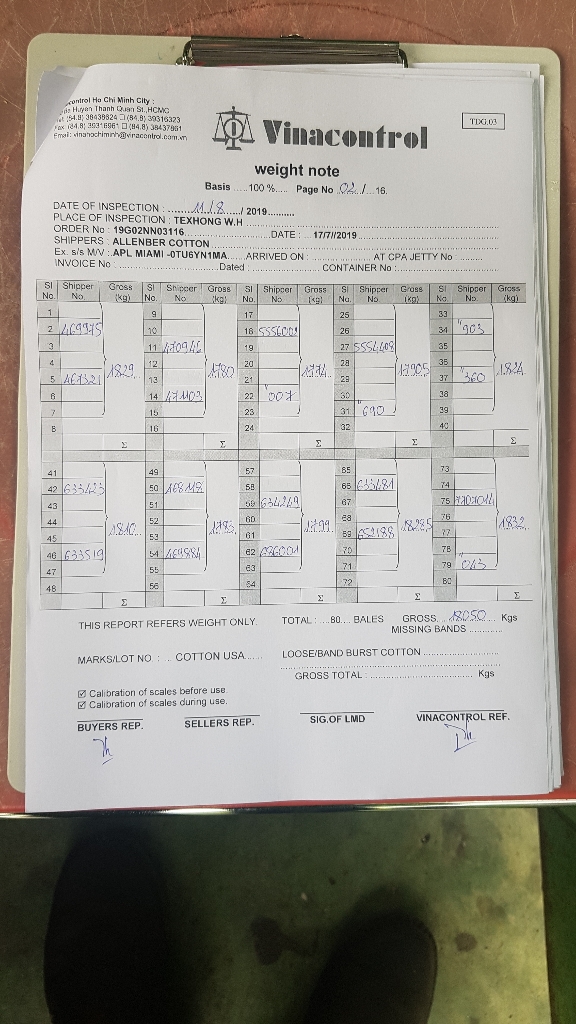 control Ho Chi Minh City :
Huyen Thanh Quan St.,HCMC
(84.8) 38438624 (84.8) 39316323
Fax: (84.8) 39316961 (84.8) 38437861
Email: vinahochiminh@vinacontrol.com.vn
Vinacontrol
TDG.03
weight note
Basis .....100 %..... Page No 02/...16.
DATE OF INSPECTION : 11/8 / 2019..........
PLACE OF INSPECTION : TEXHONG W.H
ORDER No : 19G02NN03116 DATE : 17/7//2019
SHIPPERS : ALLENBER COTTON
Ex. s/s M/V : APL MIAMI -0TU6YN1MA ARRIVED ON : AT CPA JETTY No
INVOICE No : Dated : CONTAINER No :
Sl No. Shipper No. Gross (kg) Sl No. Shipper No. Gross (kg) Sl No. Shipper No. Gross (kg) Sl No. Shipper No. Gross (kg) Sl No. Shipper No. Gross (kg)
1 9 17 25 33
2 469975 10 18 5556001 26 34 "903
3 11 470946 19 27 5554408 35
4 12 20 28 36
5 467321 1829 13 1780 21 1774 29 17905 37 "360 1824
6 14 471103 22 "007 30 38
7 15 23 31 "690 39
8 16 24 32 40
Σ Σ Σ Σ Σ
41 49 57 65 73
42 633423 50 468118 58 66 633481 74
43 51 59 634249 67 75 7707014
44 52 60 68 76
45 1810 53 1793 61 1799 69 652188 18285 77 1832
46 633519 54 469884 62 636001 70 78
47 55 63 71 79 "043
48 56 64 72 80
Σ Σ Σ Σ Σ
THIS REPORT REFERS WEIGHT ONLY. TOTAL : ...80... BALES GROSS 18050 Kgs
MISSING BANDS
MARKS/LOT NO : .. COTTON USA...... LOOSE/BAND BURST COTTON
GROSS TOTAL : Kgs
☑ Calibration of scales before use
☑ Calibration of scales during use.
BUYERS REP. SELLERS REP. SIG.OF LMD VINACONTROL REF.